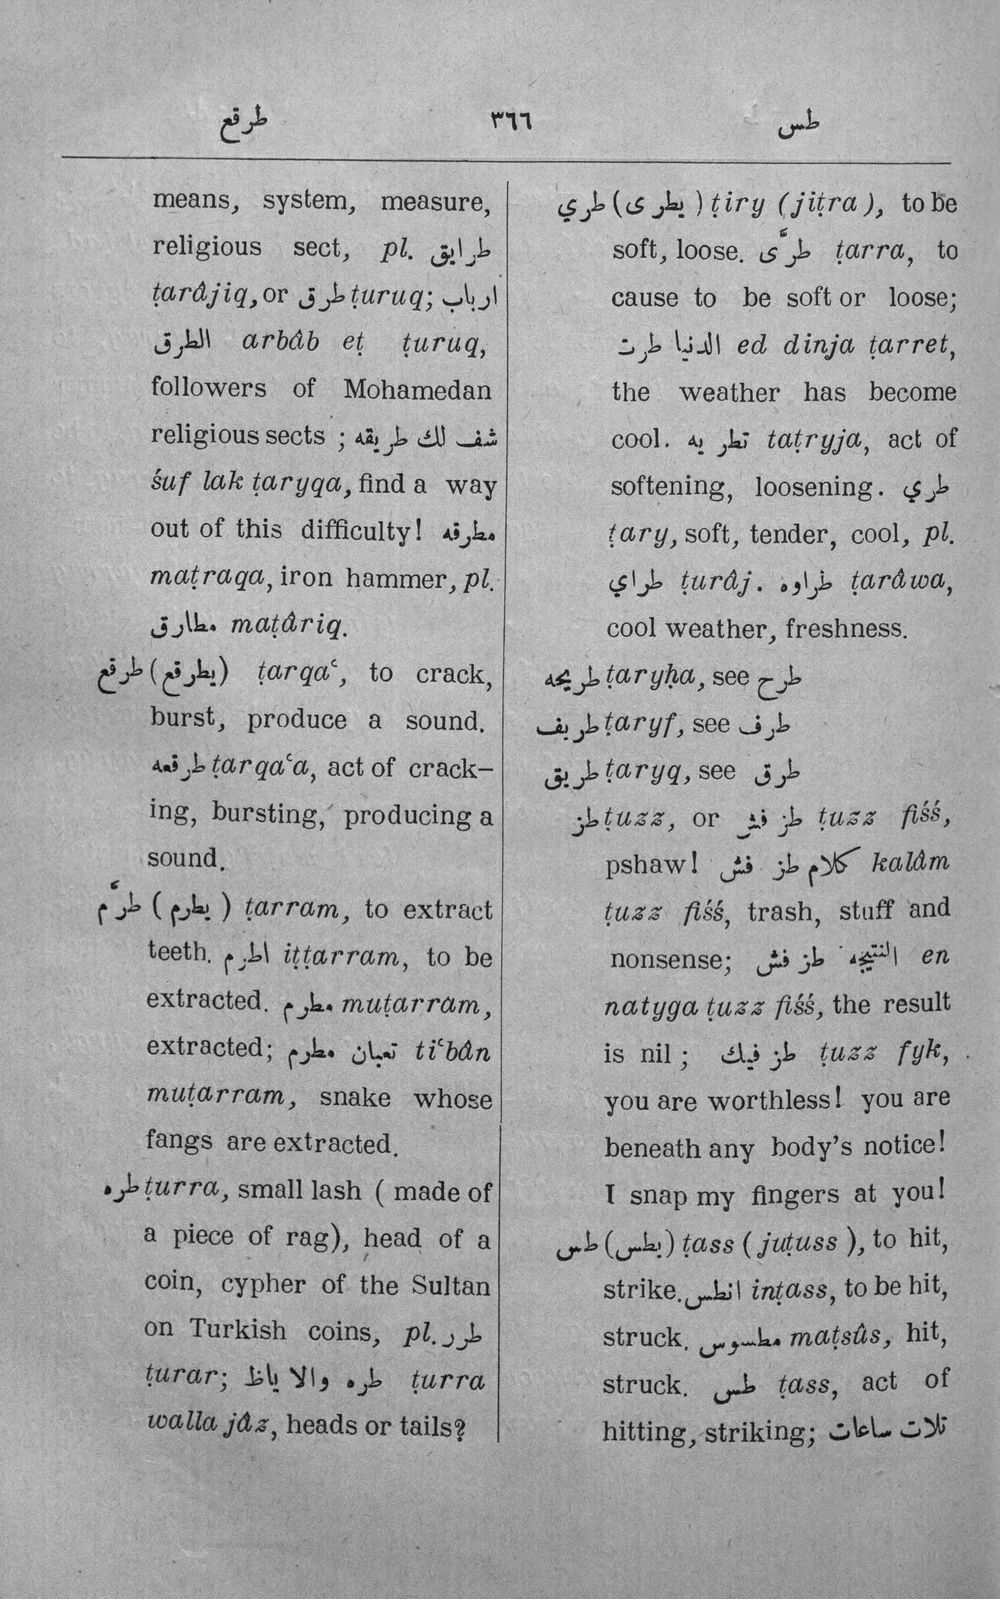 طرقع ٣٦٦ طس
means, system, measure,
religious sect, pl. طرايق
ṭarâjiq, or طرق ṭuruq; ارباب
الطرق arbâb eṭ ṭuruq,
followers of Mohamedan
religious sects ; شف لك طريقه
śuf lak ṭaryqa, find a way
out of this difficulty! مطرقه
maṭraqa, iron hammer, pl.
مطارق maṭâriq.
طرقع (يطرقع) ṭarqaʿ, to crack,
burst, produce a sound.
طرقعه ṭarqaʿa, act of crack-
ing, bursting, producing a
sound.
طرَّم (يطرم) ṭarram, to extract
teeth. اطرم iṭṭarram, to be
extracted. مطرم muṭarram,
extracted; تعبان مطرم tiʿbân
muṭarram, snake whose
fangs are extracted.
طره ṭurra, small lash ( made of
a piece of rag), head of a
coin, cypher of the Sultan
on Turkish coins, pl. طرر
ṭurar; طره والا ياظ ṭurra
walla jâz, heads or tails?
طري (يطرى) ṭiry (jiṭra), to be
soft, loose. طرَّى ṭarra, to
cause to be soft or loose;
الدنيا طرت ed dinja ṭarret,
the weather has become
cool. تطريه taṭryja, act of
softening, loosening. طري
ṭary, soft, tender, cool, pl.
طراي ṭurâj. طراوه ṭarâwa,
cool weather, freshness.
طريحه ṭaryḥa, see طرح
طريف ṭaryf, see طرف
طريق ṭaryq, see طرق
طز ṭuzz, or طز فش ṭuzz fiśś,
pshaw! كلام طز فش kalâm
ṭuzz fiśś, trash, stuff and
nonsense; النتيجه طز فش en
natyga ṭuzz fiśś, the result
is nil ; طز فيك ṭuzz fyk,
you are worthless! you are
beneath any body's notice!
I snap my fingers at you!
طس (يطس) ṭass (juṭuss ), to hit,
strike. انطس inṭass, to be hit,
struck. مطسوس maṭsûs, hit,
struck. طس ṭass, act of
hitting, striking; تلات ساعات